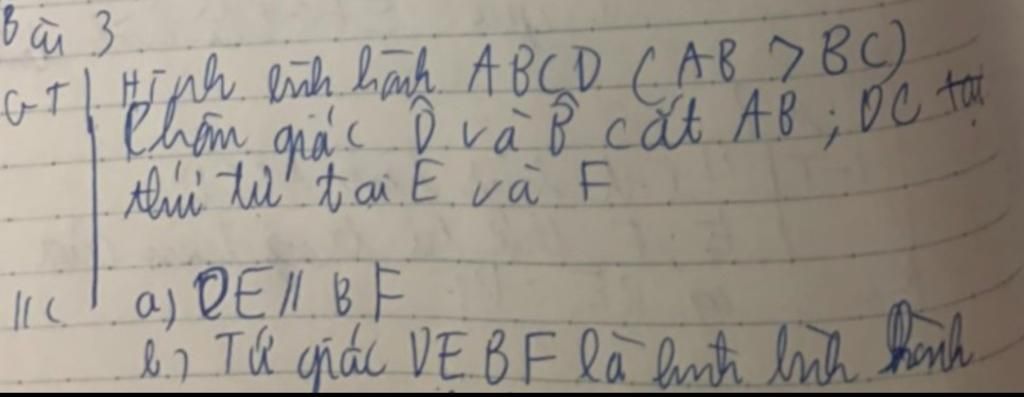 Bài 3
GT Hình bình hành ABCD (AB > BC)
Phân giác D̂ và B̂ cắt AB ; DC tại
thứ tự tại E và F
KL a) DE // BF
b) Tứ giác DEBF là hình bình hành